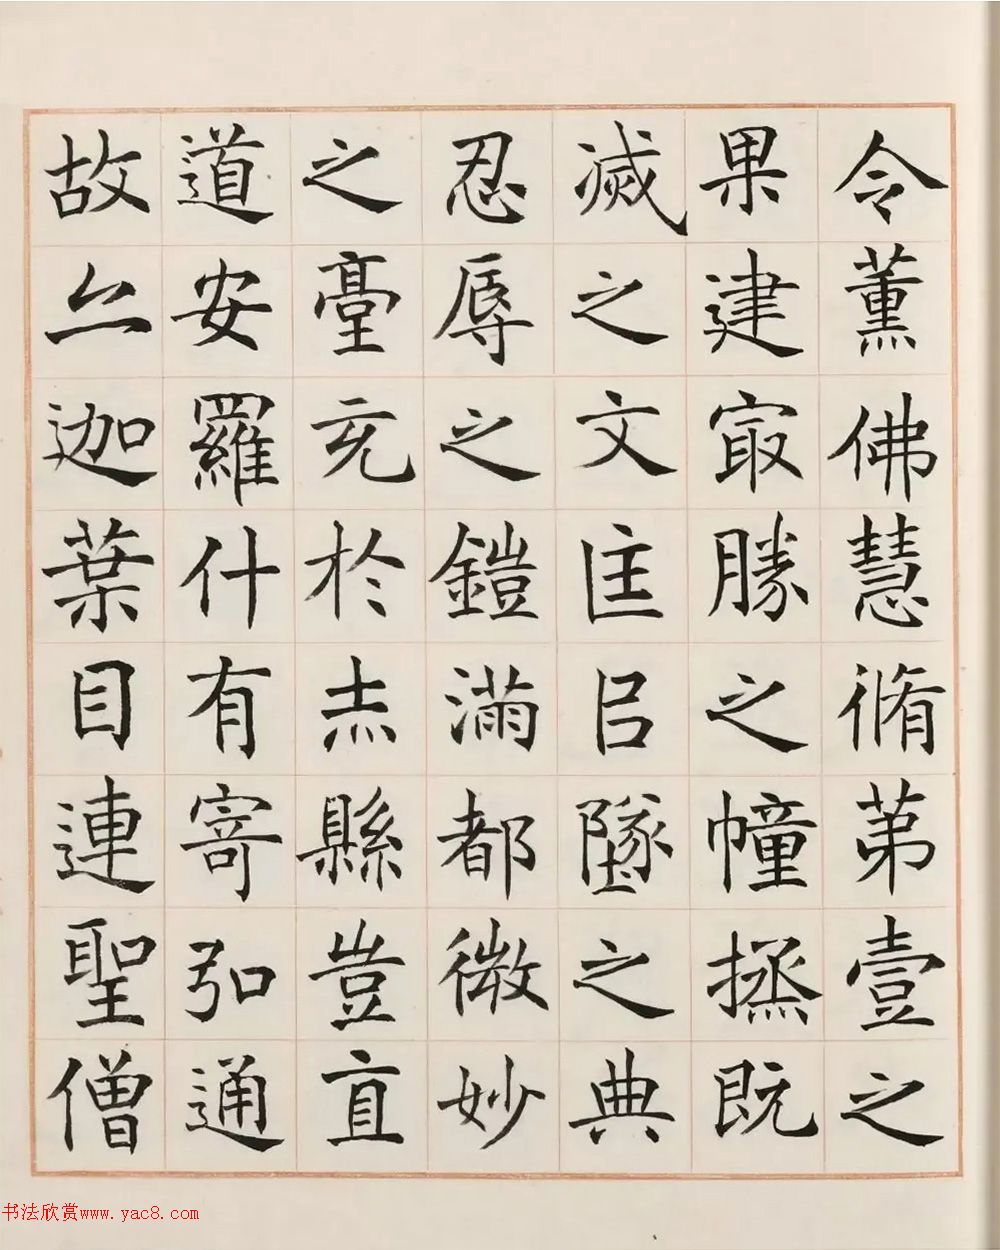 令薫佛慧脩苐壹之
果建㝡勝之幢拯既
滅之文匡㠯墜之典
忍辱之鎧滿都微妙
之臺充於赤縣豈直
道安羅什有寄弘通
故亦迦葉目連聖僧
书法欣赏www.yac8.com